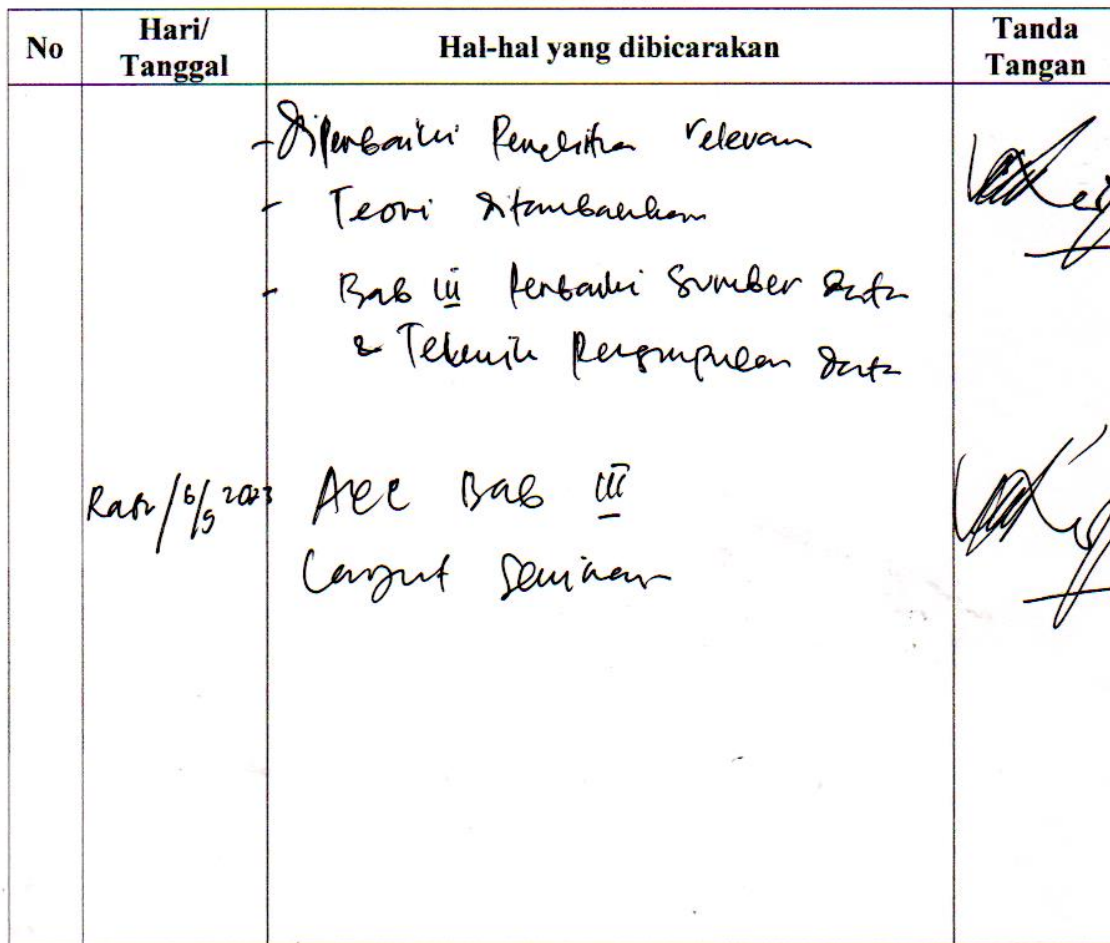 No
Hari/
Tanggal
Hal-hal yang dibicarakan
Tanda
Tangan
- Diperbaiki Penelitian relevan
- Teori ditambahkan
- Bab III Perbaiki Sumber data
& Teknik Pengumpulan data
Rabu/6/9 2023
Acc Bab III
Lanjut Seminar